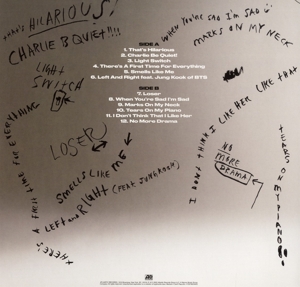 that's HILARIOUS!
CHARLIE B QUIET!!!!
LIGHT
SWITCH
WHEN YOU'RE SAD I'M SAD
MARKS ON MY NECK
SIDE A
1. That's Hilarious
2. Charlie Be Quiet!
3. Light Switch
4. There's A First Time For Everything
5. Smells Like Me
6. Left And Right feat. Jung Kook of BTS
SIDE B
7. Loser
8. When You're Sad I'm Sad
9. Marks On My Neck
10. Tears On My Piano
11. I Don't Think That I Like Her
12. No More Drama
THERE'S A FIRST TIME FOR EVERYTHING
LOSER
SMELLS LIKE ME
LEFT AND RIGHT (FEAT. JUNGKOOK)
I DON'T THINK I LIKE HER LIKE THAT
NO
MORE
DRAMA!
TEARS ON MY PIANO!!